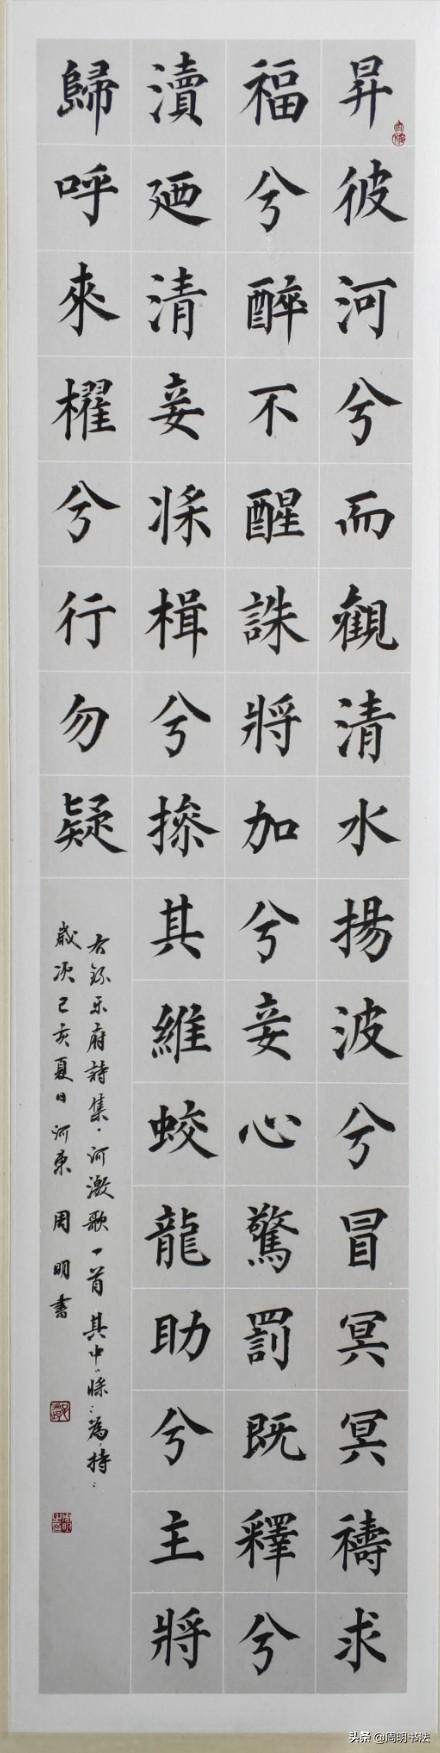 昇彼河兮而觀清水揚波兮冒冥冥禱求
福兮醉不醒誅將加兮妾心驚罰既釋兮
瀆廼清妾楫兮摻其維蛟龍助兮主將
歸呼來櫂兮行勿疑
右錄乐府詩集·河激歌一首其中為持
歲次己亥夏日河東周明書
头条 @周明书法